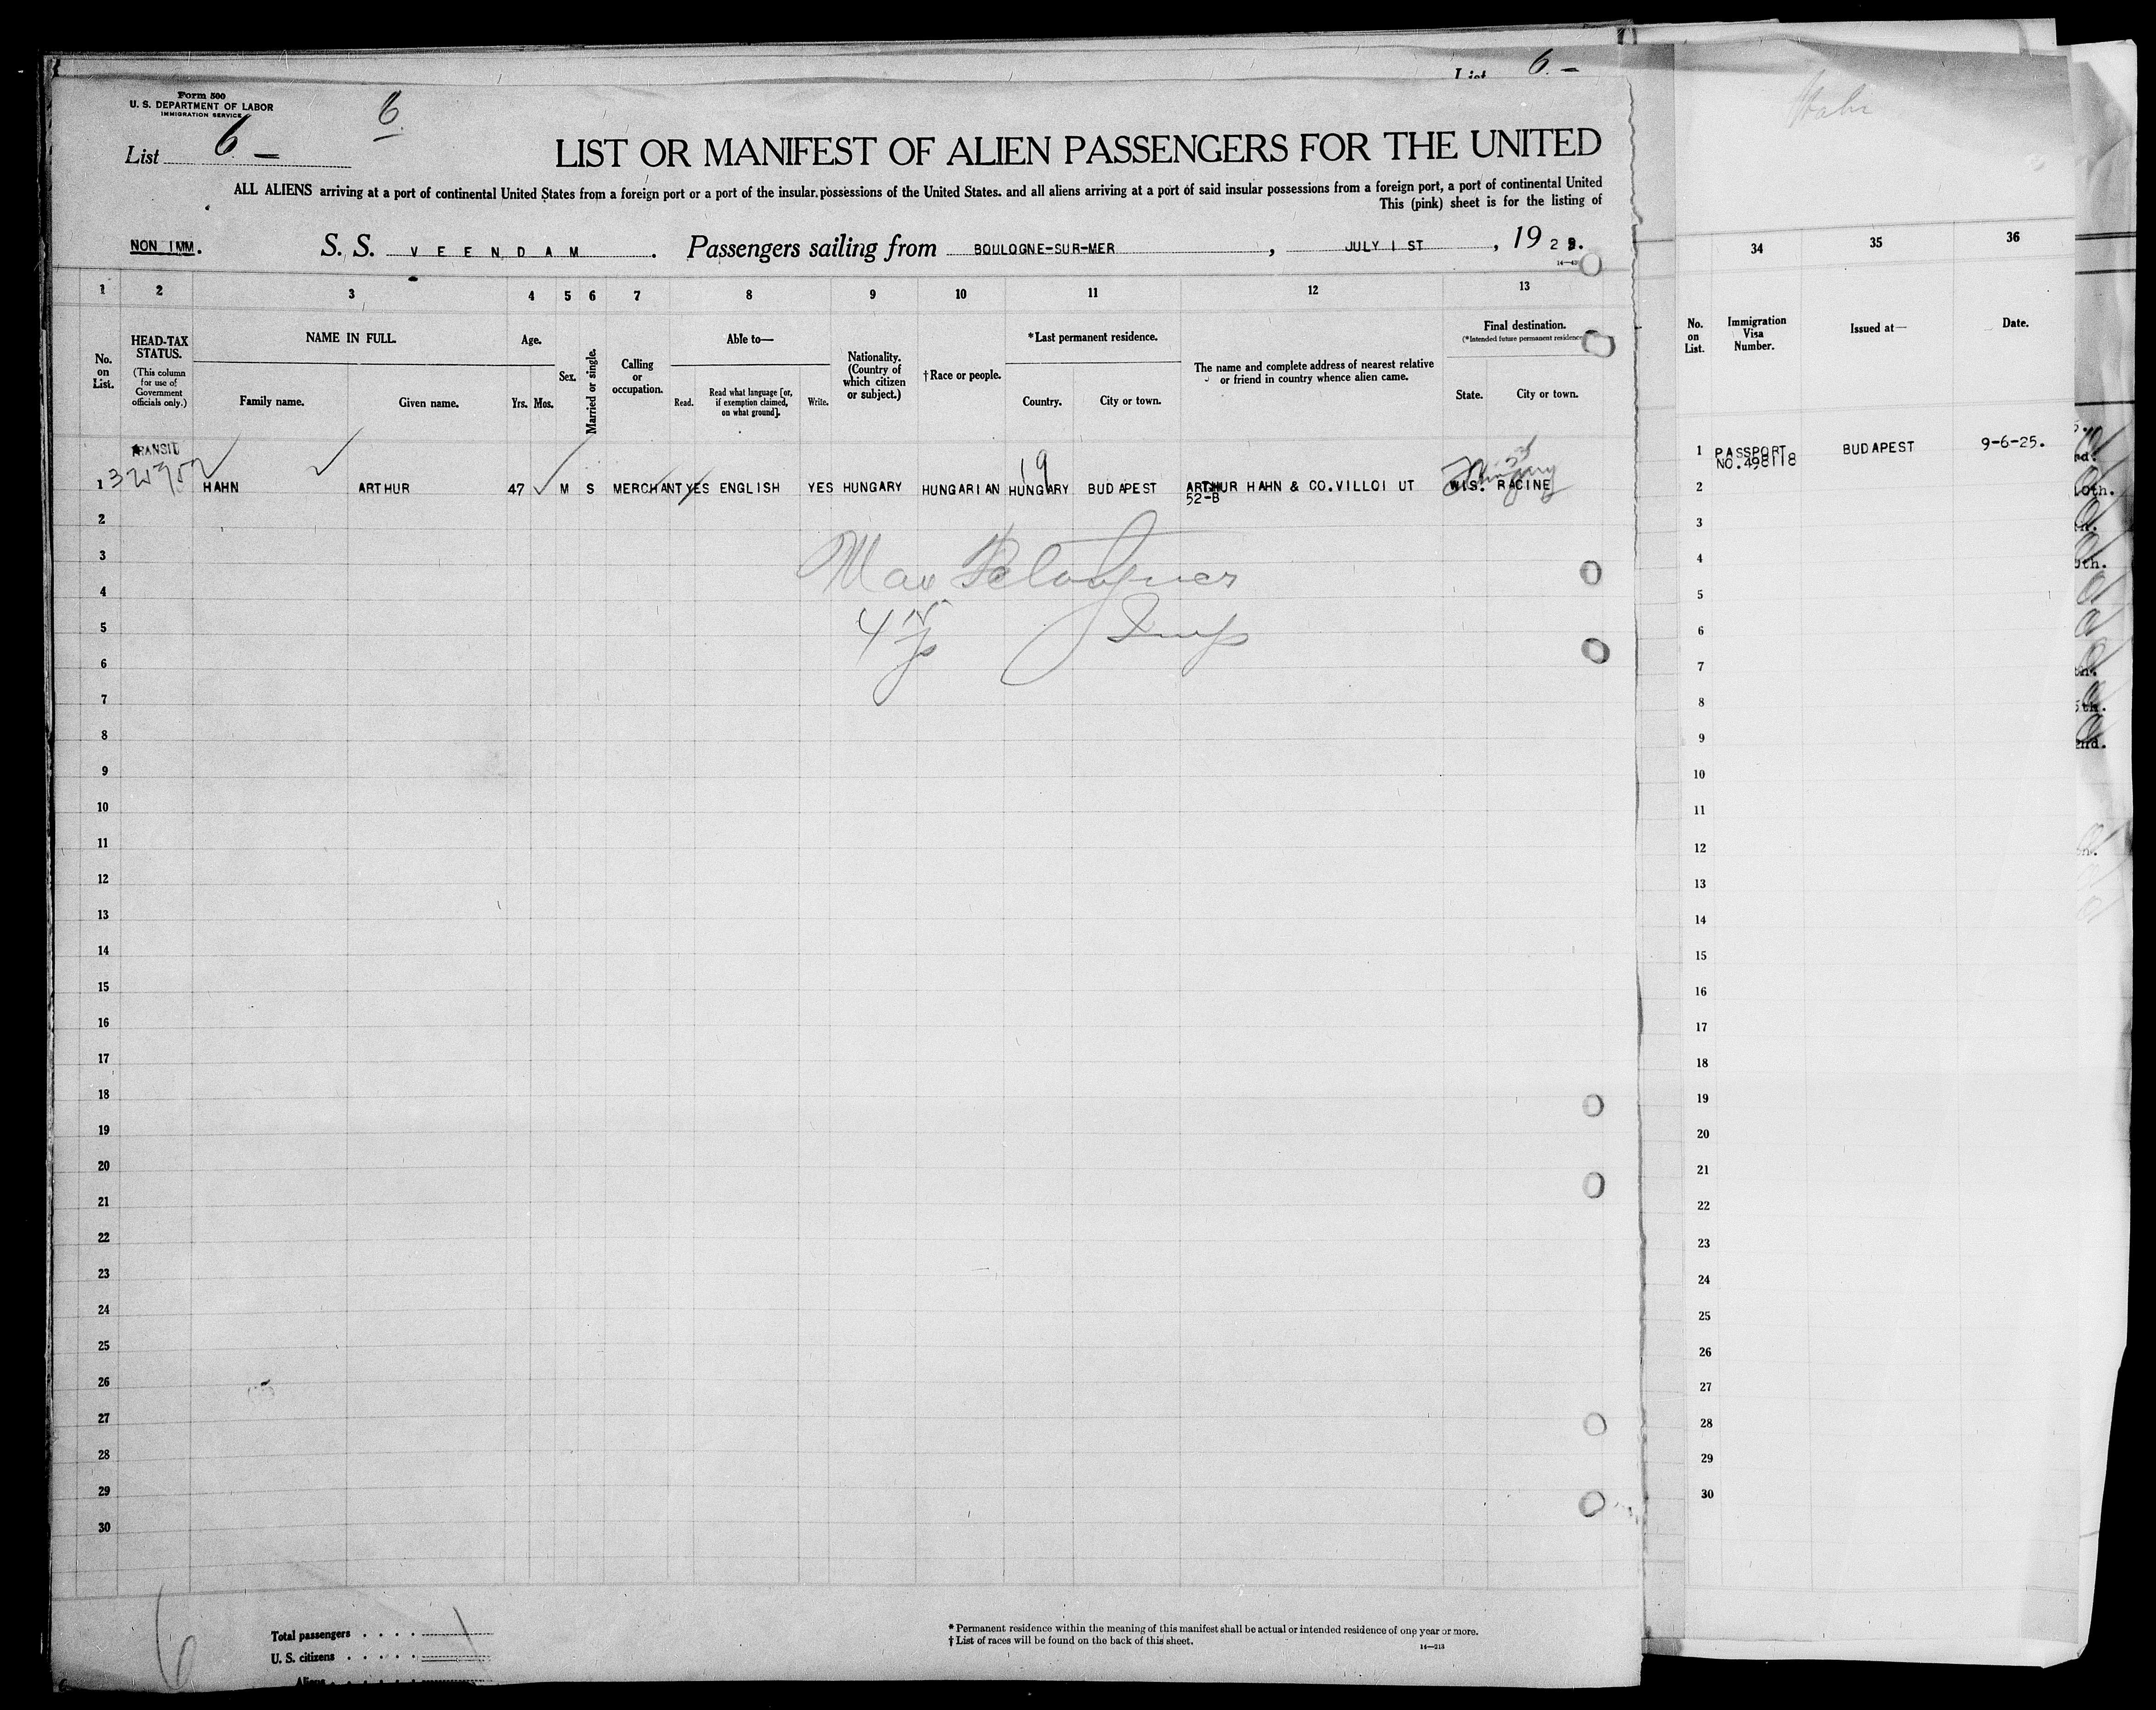 List 6 –
Form 500
U. S. DEPARTMENT OF LABOR
IMMIGRATION SERVICE
6
List 6 –
LIST OR MANIFEST OF ALIEN PASSENGERS FOR THE UNITED
ALL ALIENS arriving at a port of continental United States from a foreign port or a port of the insular possessions of the United States, and all aliens arriving at a port of said insular possessions from a foreign port, a port of continental United
This (pink) sheet is for the listing of
NON IMM. S. S. VEENDAM. Passengers sailing from BOULOGNE-SUR-MER, JULY 1 ST, 192
1 2 3 4 5 6 7 8 9 10 11 12 13
No. on List.
HEAD-TAX STATUS.
(This column for use of Government officials only.)
NAME IN FULL.
Family name. Given name.
Age.
Yrs. Mos.
Sex.
Married or single.
Calling or occupation.
Able to—
Read. Read what language [or, if exemption claimed, on what ground]. Write.
Nationality. (Country of which citizen or subject.)
†Race or people.
*Last permanent residence.
Country. City or town.
The name and complete address of nearest relative or friend in country whence alien came.
Final destination.
(*Intended future permanent residence
State. City or town.
TRANSIT
19
1 HAHN ARTHUR 47 M S MERCHANT YES ENGLISH YES HUNGARY HUNGARIAN HUNGARY BUDAPEST ARTHUR HAHN & CO. VILLOI UT WIS. RACINE
52-B
Hungary
2
3
4
5
6
7
8
9
10
11
12
13
14
15
16
17
18
19
20
21
22
23
24
25
26
27
28
29
30
6
Total passengers . . . . 1
U. S. citizens . . . . .
Aliens . . . . . .
* Permanent residence within the meaning of this manifest shall be actual or intended residence of one year or more.
† List of races will be found on the back of this sheet.
14—213
Hahn
34 35 36
No. on List.
Immigration Visa Number.
Issued at—
Date.
1 PASSPORT BUDAPEST 9-6-25.
NO.498118
2
3
4
5
6
7
8
9
10
11
12
13
14
15
16
17
18
19
20
21
22
23
24
25
26
27
28
29
30